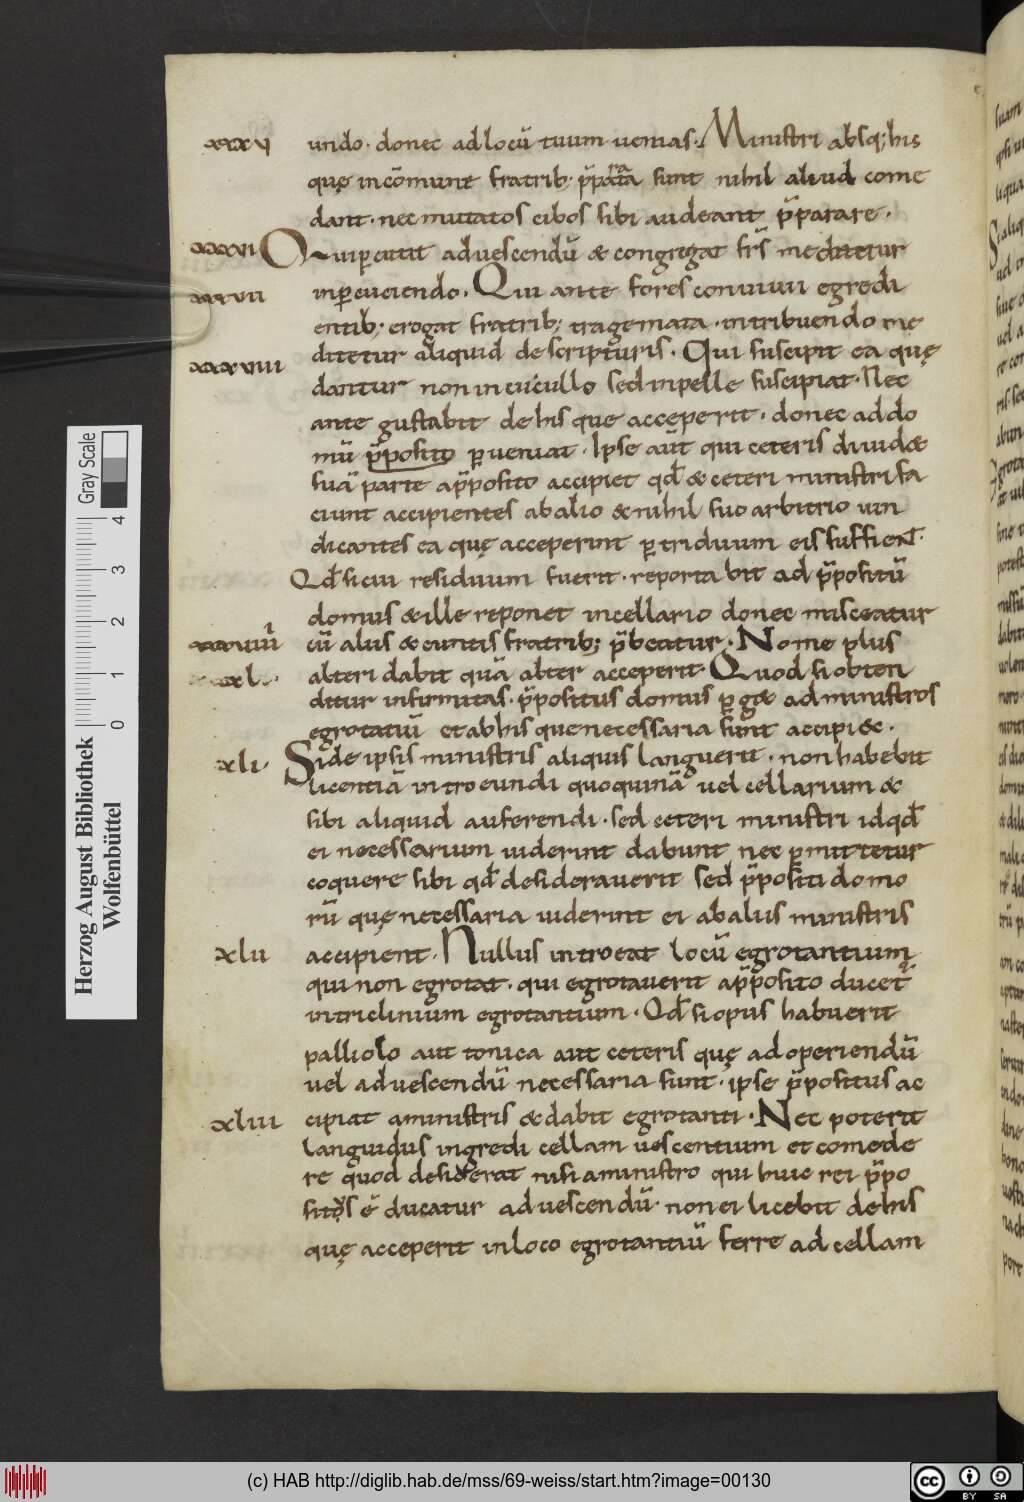 xxxv undo. donec ad locū tuum uenias. Ministri absq; his
quę incōmune fratrib. p̄parata sunt nihil aliud come
dant. nec mutatos cibos sibi audeant p̄parare.
xxxvi Qui percutit aduescendū & congregat frs̄ meditetur
xxxvii inpercuciendo. Qui ante fores conuiuii egredi
entib; erogat fratrib; tragemata. intribuendo me
ditetur aliquid descripturis. Qui suscipit ea quę
xxxviii dantur non incucullo sed inpelle suscipiat. Nec
ante gustabit dehis que acceperit. donec addo
mū p̄posito perueniat. Ipse aut̄ qui ceteris diuid&
suā parte ap̄posito accipiet qd̄ & ceteri ministri fa
ciunt accipientes abalio & nihil suo arbitrio uin
dicantes ea quę acceperint per triduum eis sufficient.
Qd̄ si cui residuum fuerit. reportabit ad p̄positū
domus & ille reponet incellario donec misceatur
xxxviiii cū aliis & cuntis fratrib; p̄beatur. Nomo plus
xl. alteri dabit quā alter acceperit. Quod si obten
ditur infirmitas. p̄positus domus perg& ad ministros
egrotatiū et abhis que necessaria sunt accipi&.
xli. Si de ipsis ministris aliquis languerit. non habebit
licentiā introeundi quoquinā uel cellarium &
sibi aliquid auferendi. sed ceteri ministri id qd̄
ei necessarium uiderint dabunt nec permittetur
coquere sibi qd̄ desiderauerit sed p̄positi domo
rū quę necessaria uiderint ei abaliis ministris
xlii accipient. Nullus introeat locū egrotantium
qui non egrotat. qui egrotauerit ap̄posito ducet
intriclinium egrotantium. Qd̄ si opus habuerit
palliolo aut tonica aut ceteris quę adoperiendū
uel aduescendū necessaria sunt. ipse p̄positus ac
xliii cipiat aministris & dabit egrotanti. Nec poterit
languidus ingredi cellam uescentium et comede
re quod desiderat nisi aministro qui huic rei p̄po
ē ducatur aduescendū. non ei licebit dehis
quę acceperit inloco egrotantiū ferre ad cellam
Gray Scale
0 1 2 3 4
Herzog August Bibliothek
Wolfenbüttel
(c) HAB http://diglib.hab.de/mss/69-weiss/start.htm?image=00130
cc BY SA